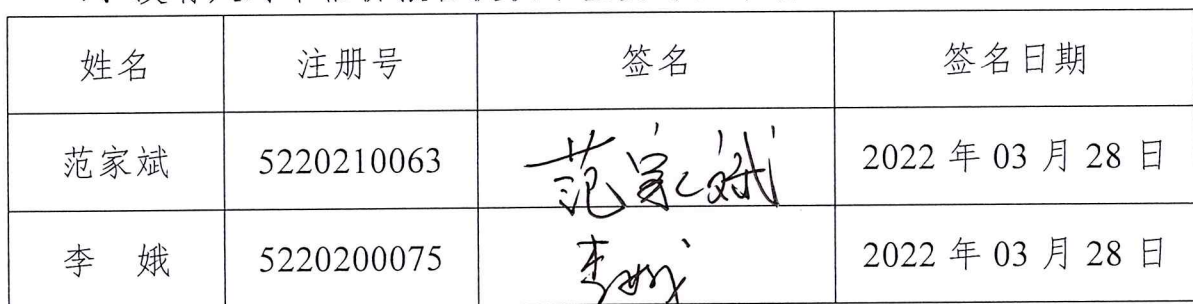 姓名 注册号 签名 签名日期
范家斌 5220210063 范家斌 2022 年 03 月 28 日
李 娥 5220200075 李娥 2022 年 03 月 28 日